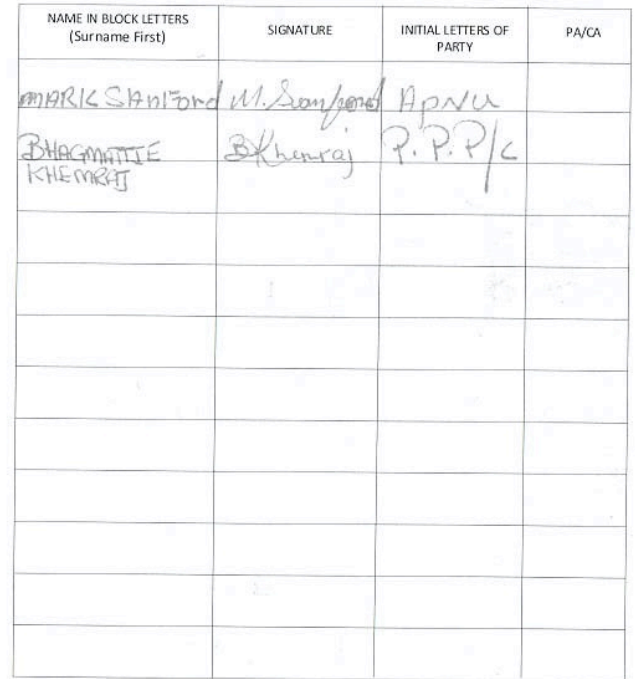 NAME IN BLOCK LETTERS
(Surname First)
SIGNATURE
INITIAL LETTERS OF
PARTY
PA/CA
MARK SANFord M. Sanford APNU
BHAGMATTIE BKhemraj P.P.P/C
KHEMRAJ